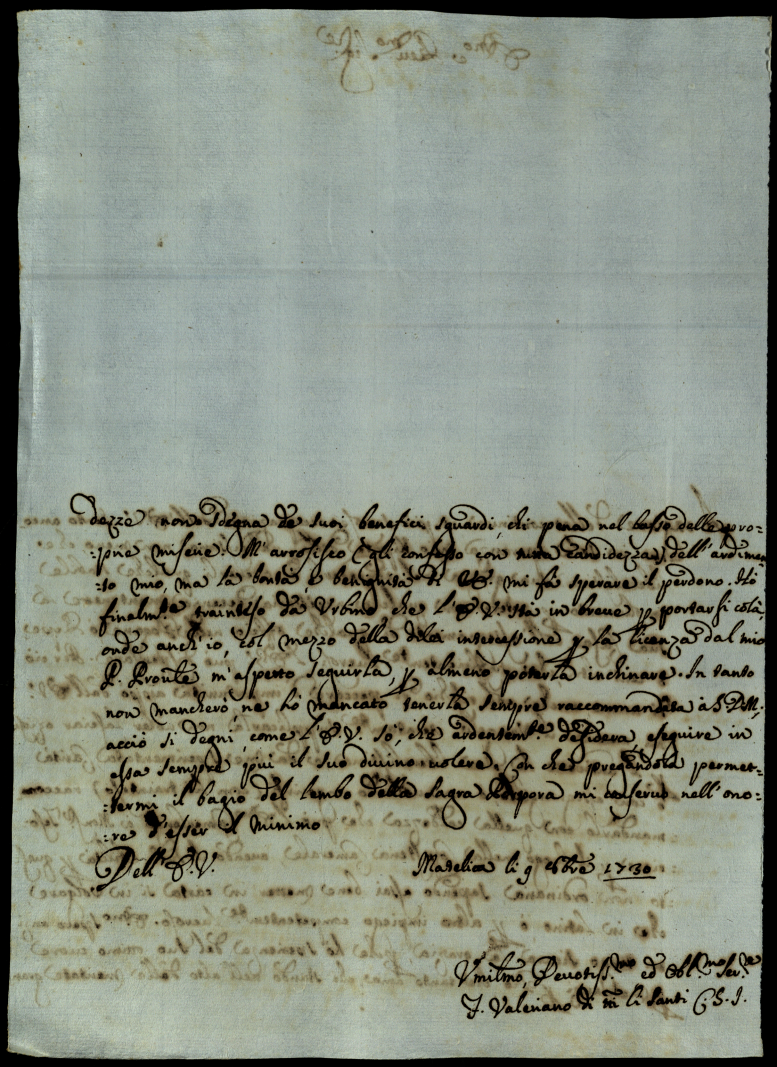 dezze non sdegna de suoi benefici sguardi, chi pena nel basso delle pro=
=prie miserie. M'arrosisco (gli confesso con tutta candidezza) dell'ardimen=
=to mio, ma la bontà e benignità di mi fà sperare il perdono. Hò
finalm.te trainteso da Urbino che l'E.V. stà in breve p portarsi colà,
onde anch'io, col mezzo della di lei intercessione p la licenza dal mio
P. Pronle m'aspetto seguirla, p almeno poterla inchinare. In tanto
non mancherò, ne hò mancato tenerla sempre raccommandata à S.D.M.,
acciò si degni, come l'E.V. sò, che ardentem.te desidera eseguire in
essa sempre più il suo divino volere. Con che pregandola permet=
=termi il bagio del lembo della Sagra Porpora mi conservo nell'ono=
=re d'esser il minimo
Dell'E.V.
Matelica li 9 1730
Vmilmo, Devotiss.mo ed Obl.mo Ser.e
F. Valeriano di tti li Santi C.S.